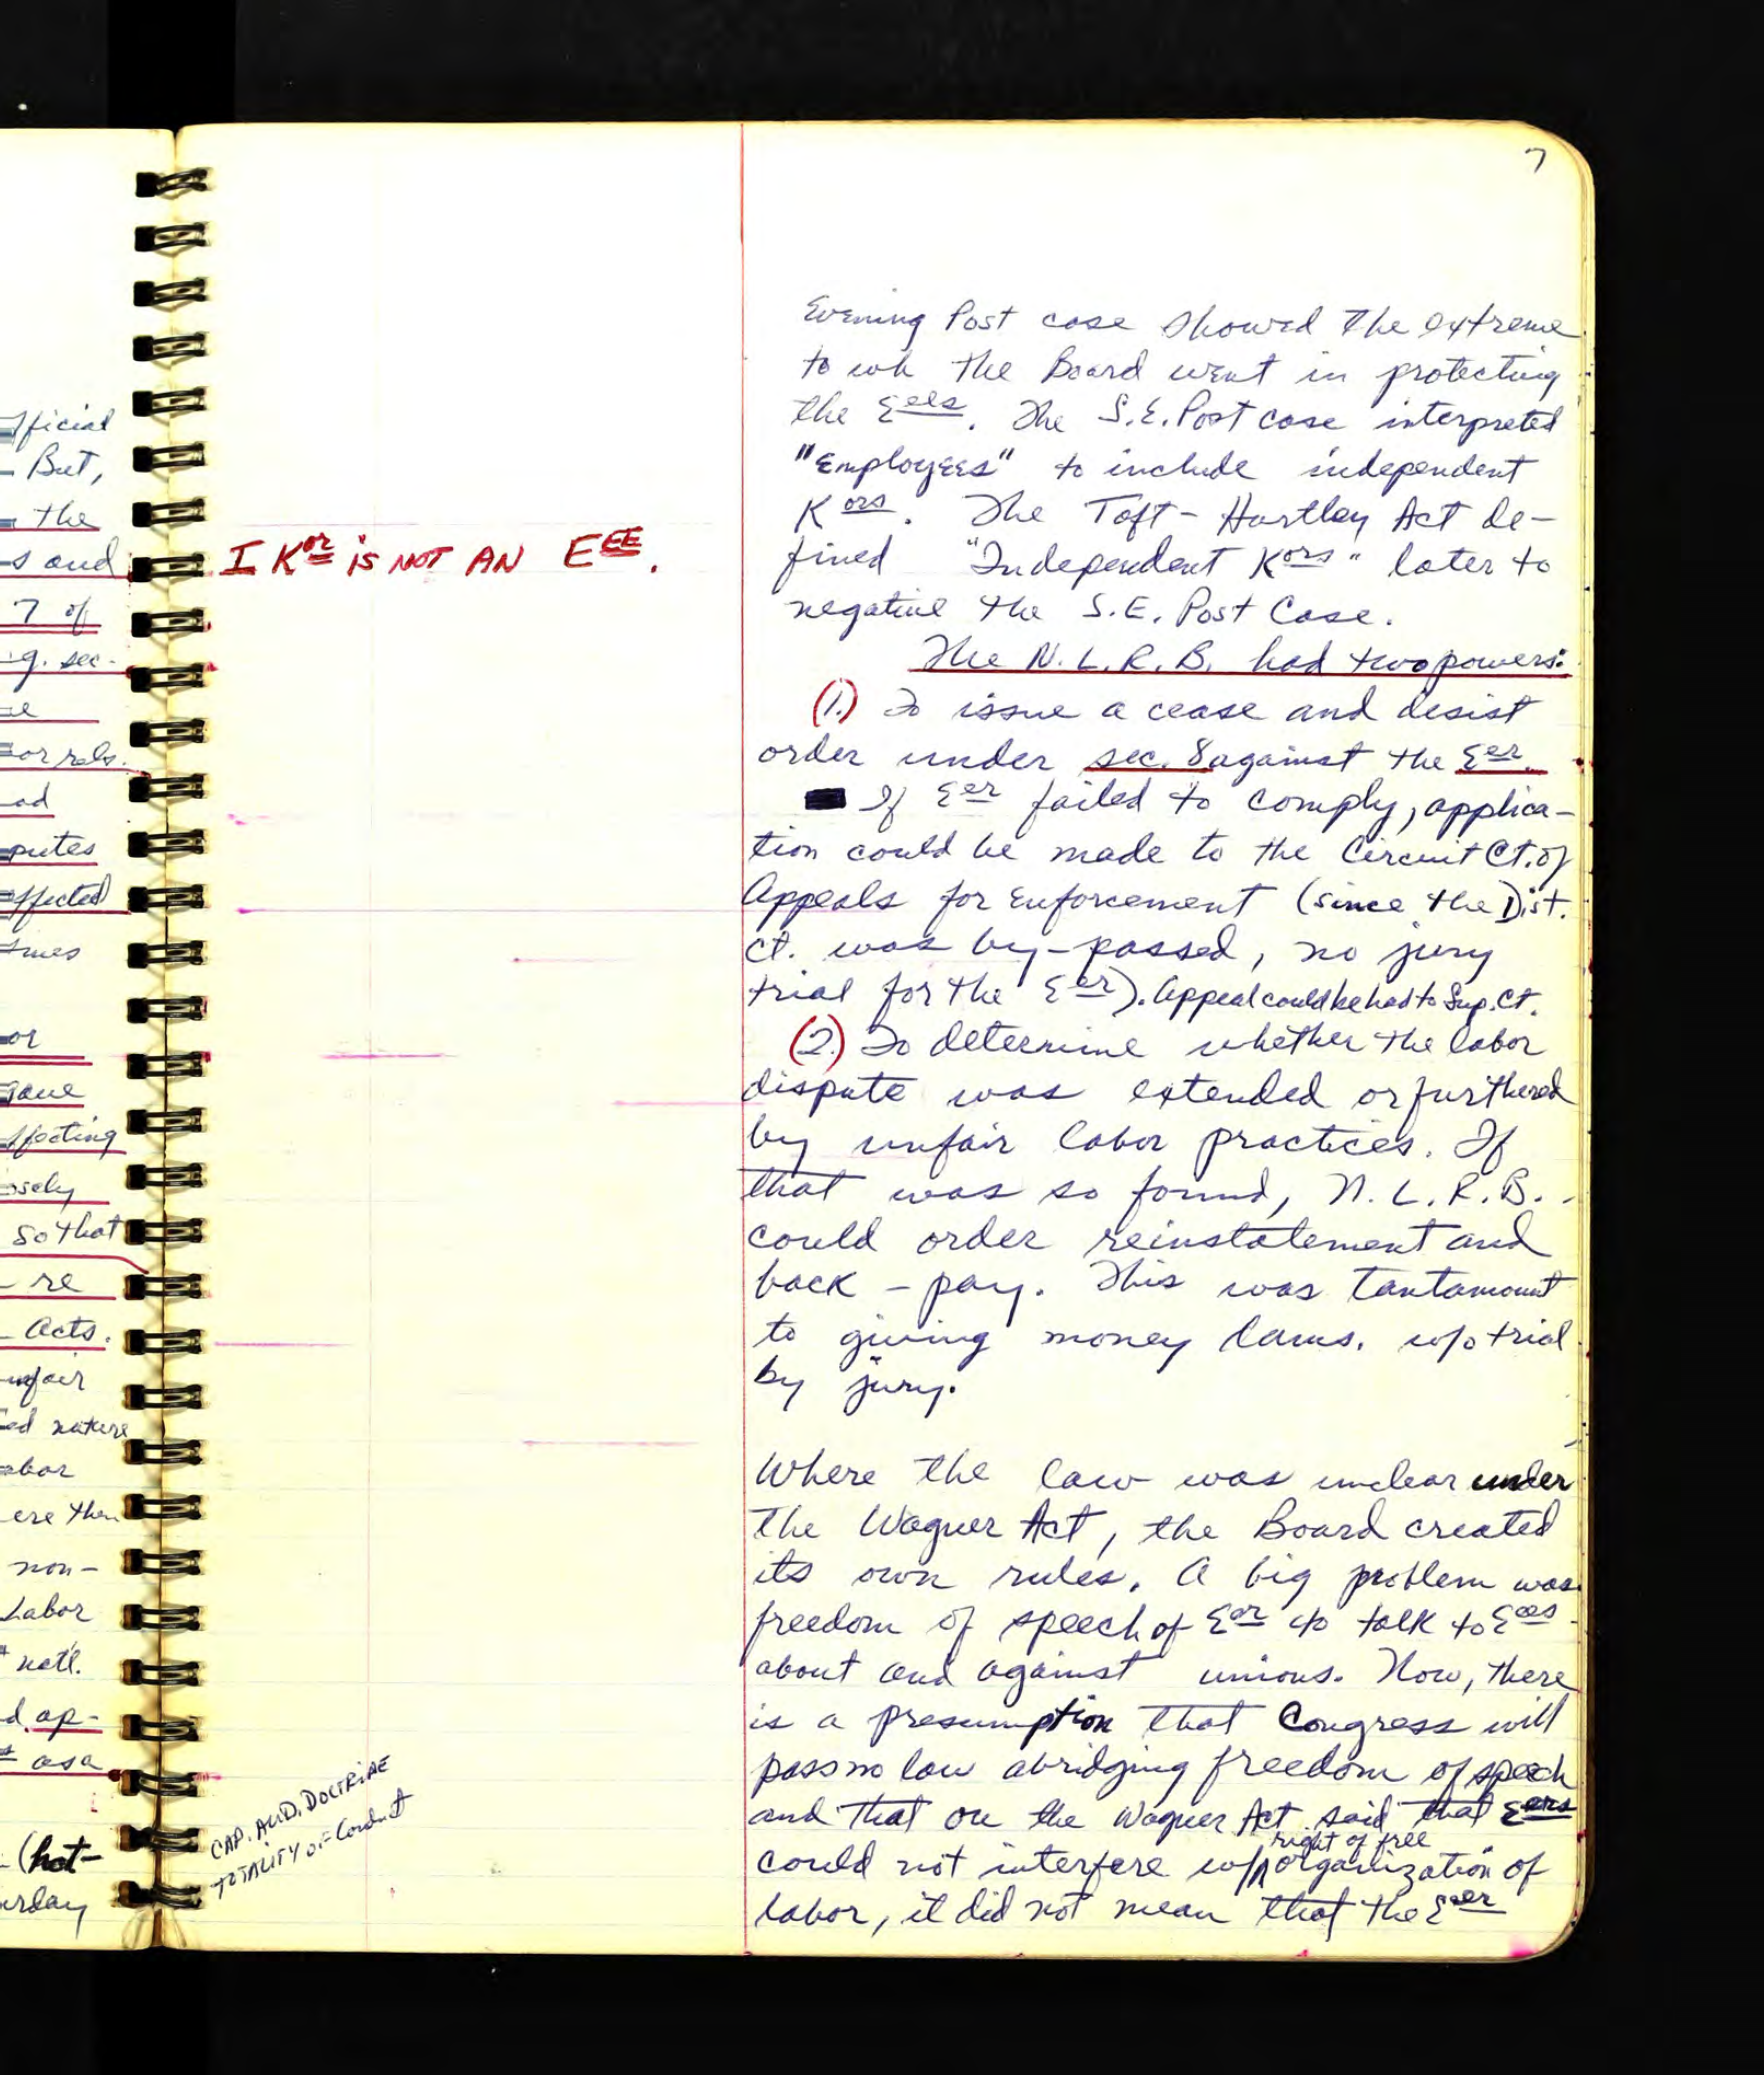 7
Evening Post case showed the extreme
to wh the Board went in protecting
the Eees. The S.E. Post case interpreted
"Employees" to include independent
Kors. The Taft-Hartley Act de-
fined "Independent Kors" later to
negative the S.E. Post Case.
The N.L.R.B. had two powers:
(1.) To issue a cease and desist
order under sec. 8 against the Eer.
If Eer failed to comply, applica-
tion could be made to the Circuit Ct. of
Appeals for Enforcement (since the Dist.
Ct. was by-passed, no jury
trial for the Eer). Appeal could be had to Sup. Ct.
(2.) To determine whether the labor
dispute was extended or furthered
by unfair labor practices. If
that was so found, N.L.R.B.
could order reinstatement and
back-pay. This was tantamount
to giving money dams. w/o trial
by jury.
Where the law was unclear under
the Wagner Act, the Board created
its own rules. A big problem was
freedom of speech of Eer to talk to Eees
about and against unions. Now, there
is a presumption that Congress will
pass no law abridging freedom of speech
and that on the Wagner Act said that Eers
right of free
could not interfere w/ organization of
labor, it did not mean that the Eer
I Kor is NOT AN EEE.
CAP. AUD. DOCTRINE
TOTALITY OF Conduct
fficial
But,
the
s and
7 of
g. sec-
or rels.
ad
putes
ffected
or
gave
ffecting
so that
re
Acts.
unfair
ed nature
abor
ere then
non-
Labor
natl.
d ap-
as a
(hot-
urday